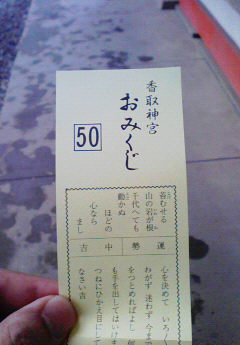 香取神宮
おみくじ
50
苔むせる
山の岩が根
千代へても
動かぬ
ほどの
心なら
まし
運勢
中吉
心を決めて いろく
わがず 迷わず 今ま
をつとめればよし 何
も手を出してはいけま
つねにひかえ目にして
なさい吉